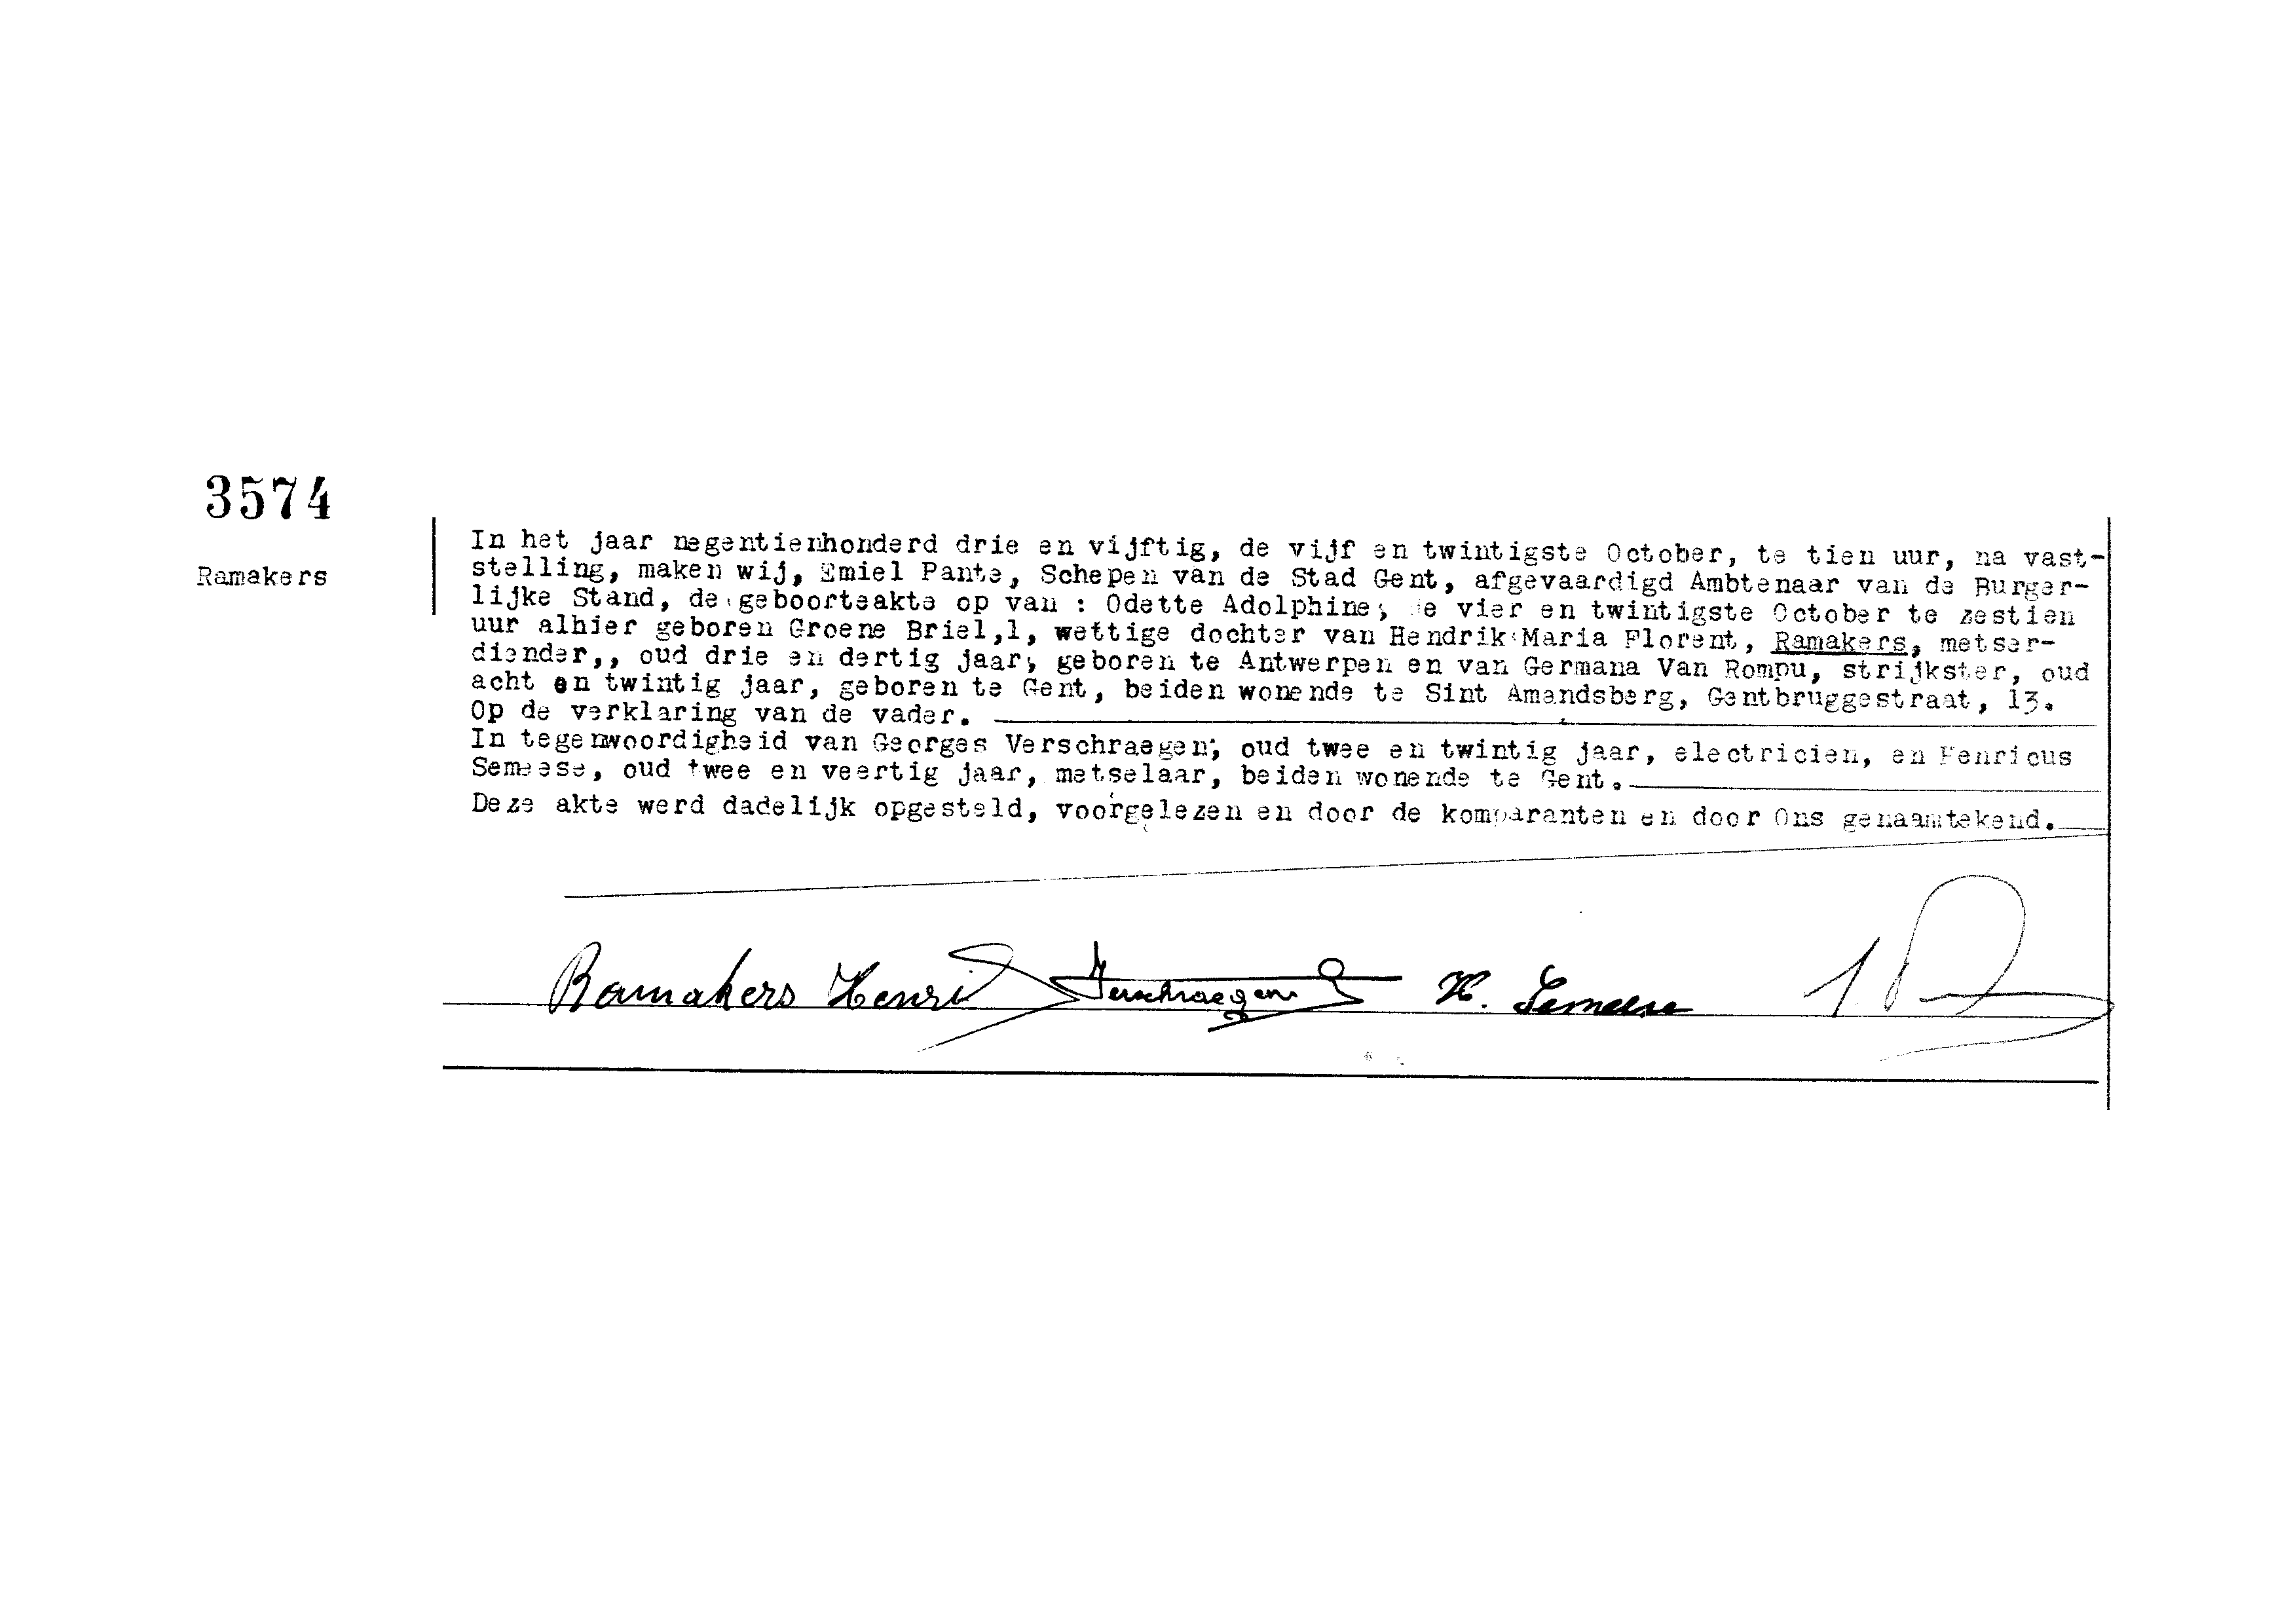 3574
Ramakers
In het jaar negentienhonderd drie en vijftig, de vijf en twintigste October, te tien uur, na vast-
stelling, maken wij, Emiel Pante, Schepen van de Stad Gent, afgevaardigd Ambtenaar van de Burger-
lijke Stand, de geboorteakte op van : Odette Adolphine, de vier en twintigste October te zestien
uur alhier geboren Groene Briel,1, wettige dochter van Hendrik Maria Florent, Ramakers, metser-
diender,, oud drie en dertig jaar, geboren te Antwerpen en van Germana Van Rompu, strijkster, oud
acht en twintig jaar, geboren te Gent, beiden wonende te Sint Amandsberg, Gentbruggestraat, 13.
Op de verklaring van de vader.
In tegenwoordigheid van Georges Verschraegen, oud twee en twintig jaar, electricien, en Henricus
Semeese, oud twee en veertig jaar, metselaar, beiden wonende te Gent.
Deze akte werd dadelijk opgesteld, voorgelezen en door de komparanten en door Ons genaamtekend.
Ramakers Henri Verschraegen H. Semeese